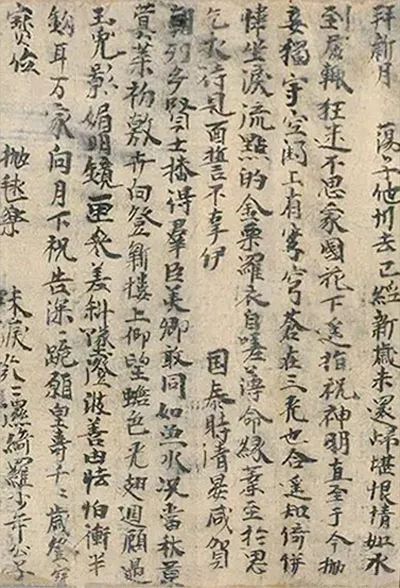 拜新月　蕩子他州去已經新歲未還歸堪恨情如水
到處輒狂迷不思家國花下遥指祝神明直至于今抛
妾獨守空閨上有穹蒼在三光也合遥知倚併
幃坐淚流點的金粟羅衣自嗟薄命緣業至於思
乞求待見面誓不辜伊　國泰時清晏咸賀
朝列多賢士播得羣臣美卿敢同如魚水況當秋景
蓂葉初敷卉向登新樓上仰望蟾色光翅迴顧遇
玉兔影媚明鏡匣參差斜墜澄波善由怯怕衝半
鈎耳万家向月下祝告深〻跪願皇壽千〻歲登
寶位　抛毬樂　珠淚芬〻濕綺羅少年公子